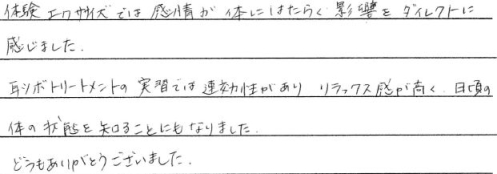 体験エクササイズでは感情が体にはたらく影響をダイレクトに
感じました.
耳ツボトリートメントの実習では速効性があり リラックス感が高く、日頃の
体の状態を知ることにもなりました.
どうもありがとうございました.